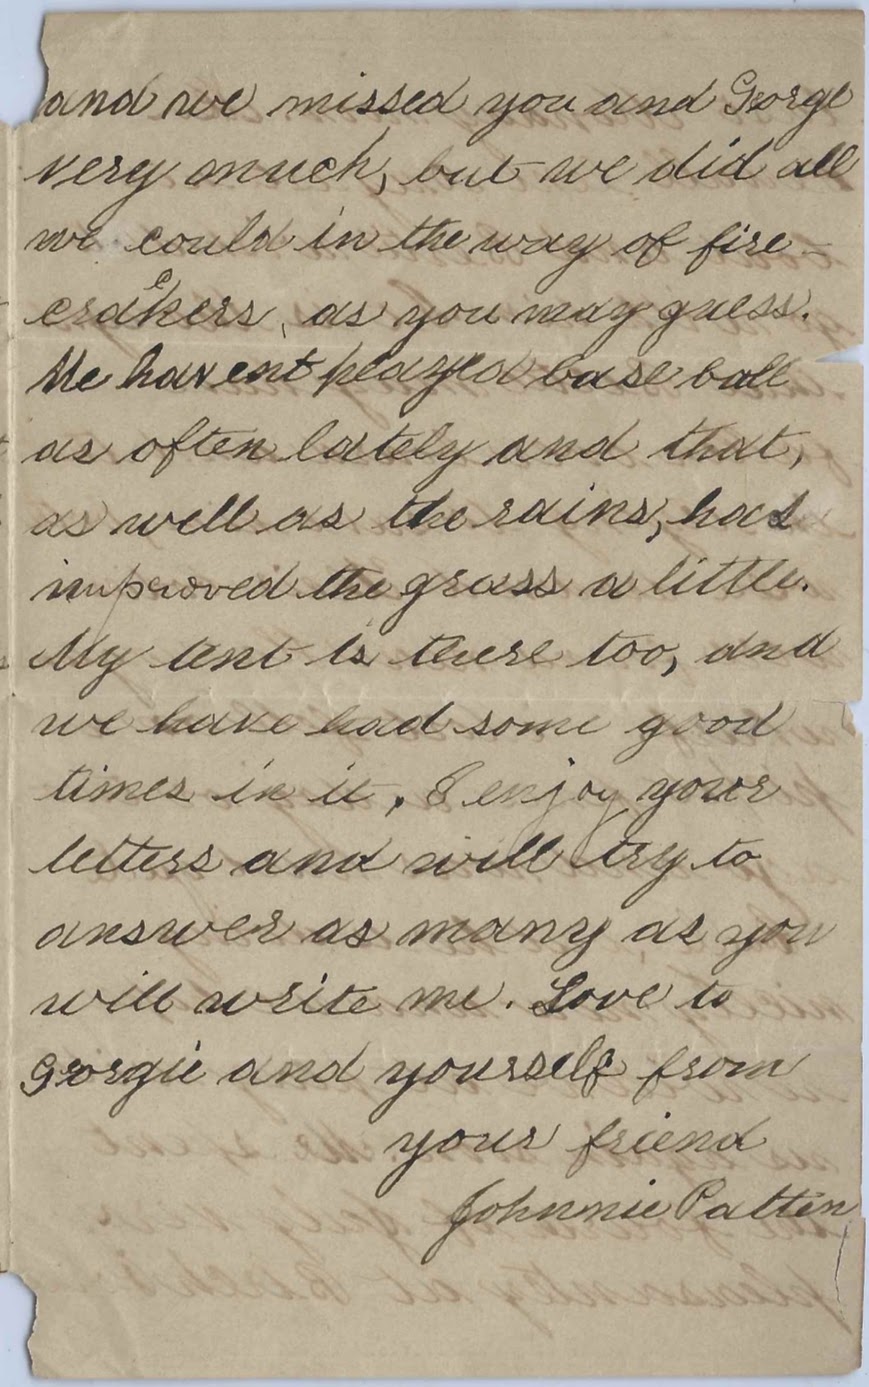 and we missed you and George
very much, but we did all
we could in the way of fire-
crackers, as you may guess.
We havent played base ball
as often lately and that,
as well as the rains, has
improved the grass a little.
My tent is there too, and
we have had some good
times in it. I enjoy your
letters and will try to
answer as many as you
will write me. Love to
Georgie and yourself from
your friend
Johnnie Patten